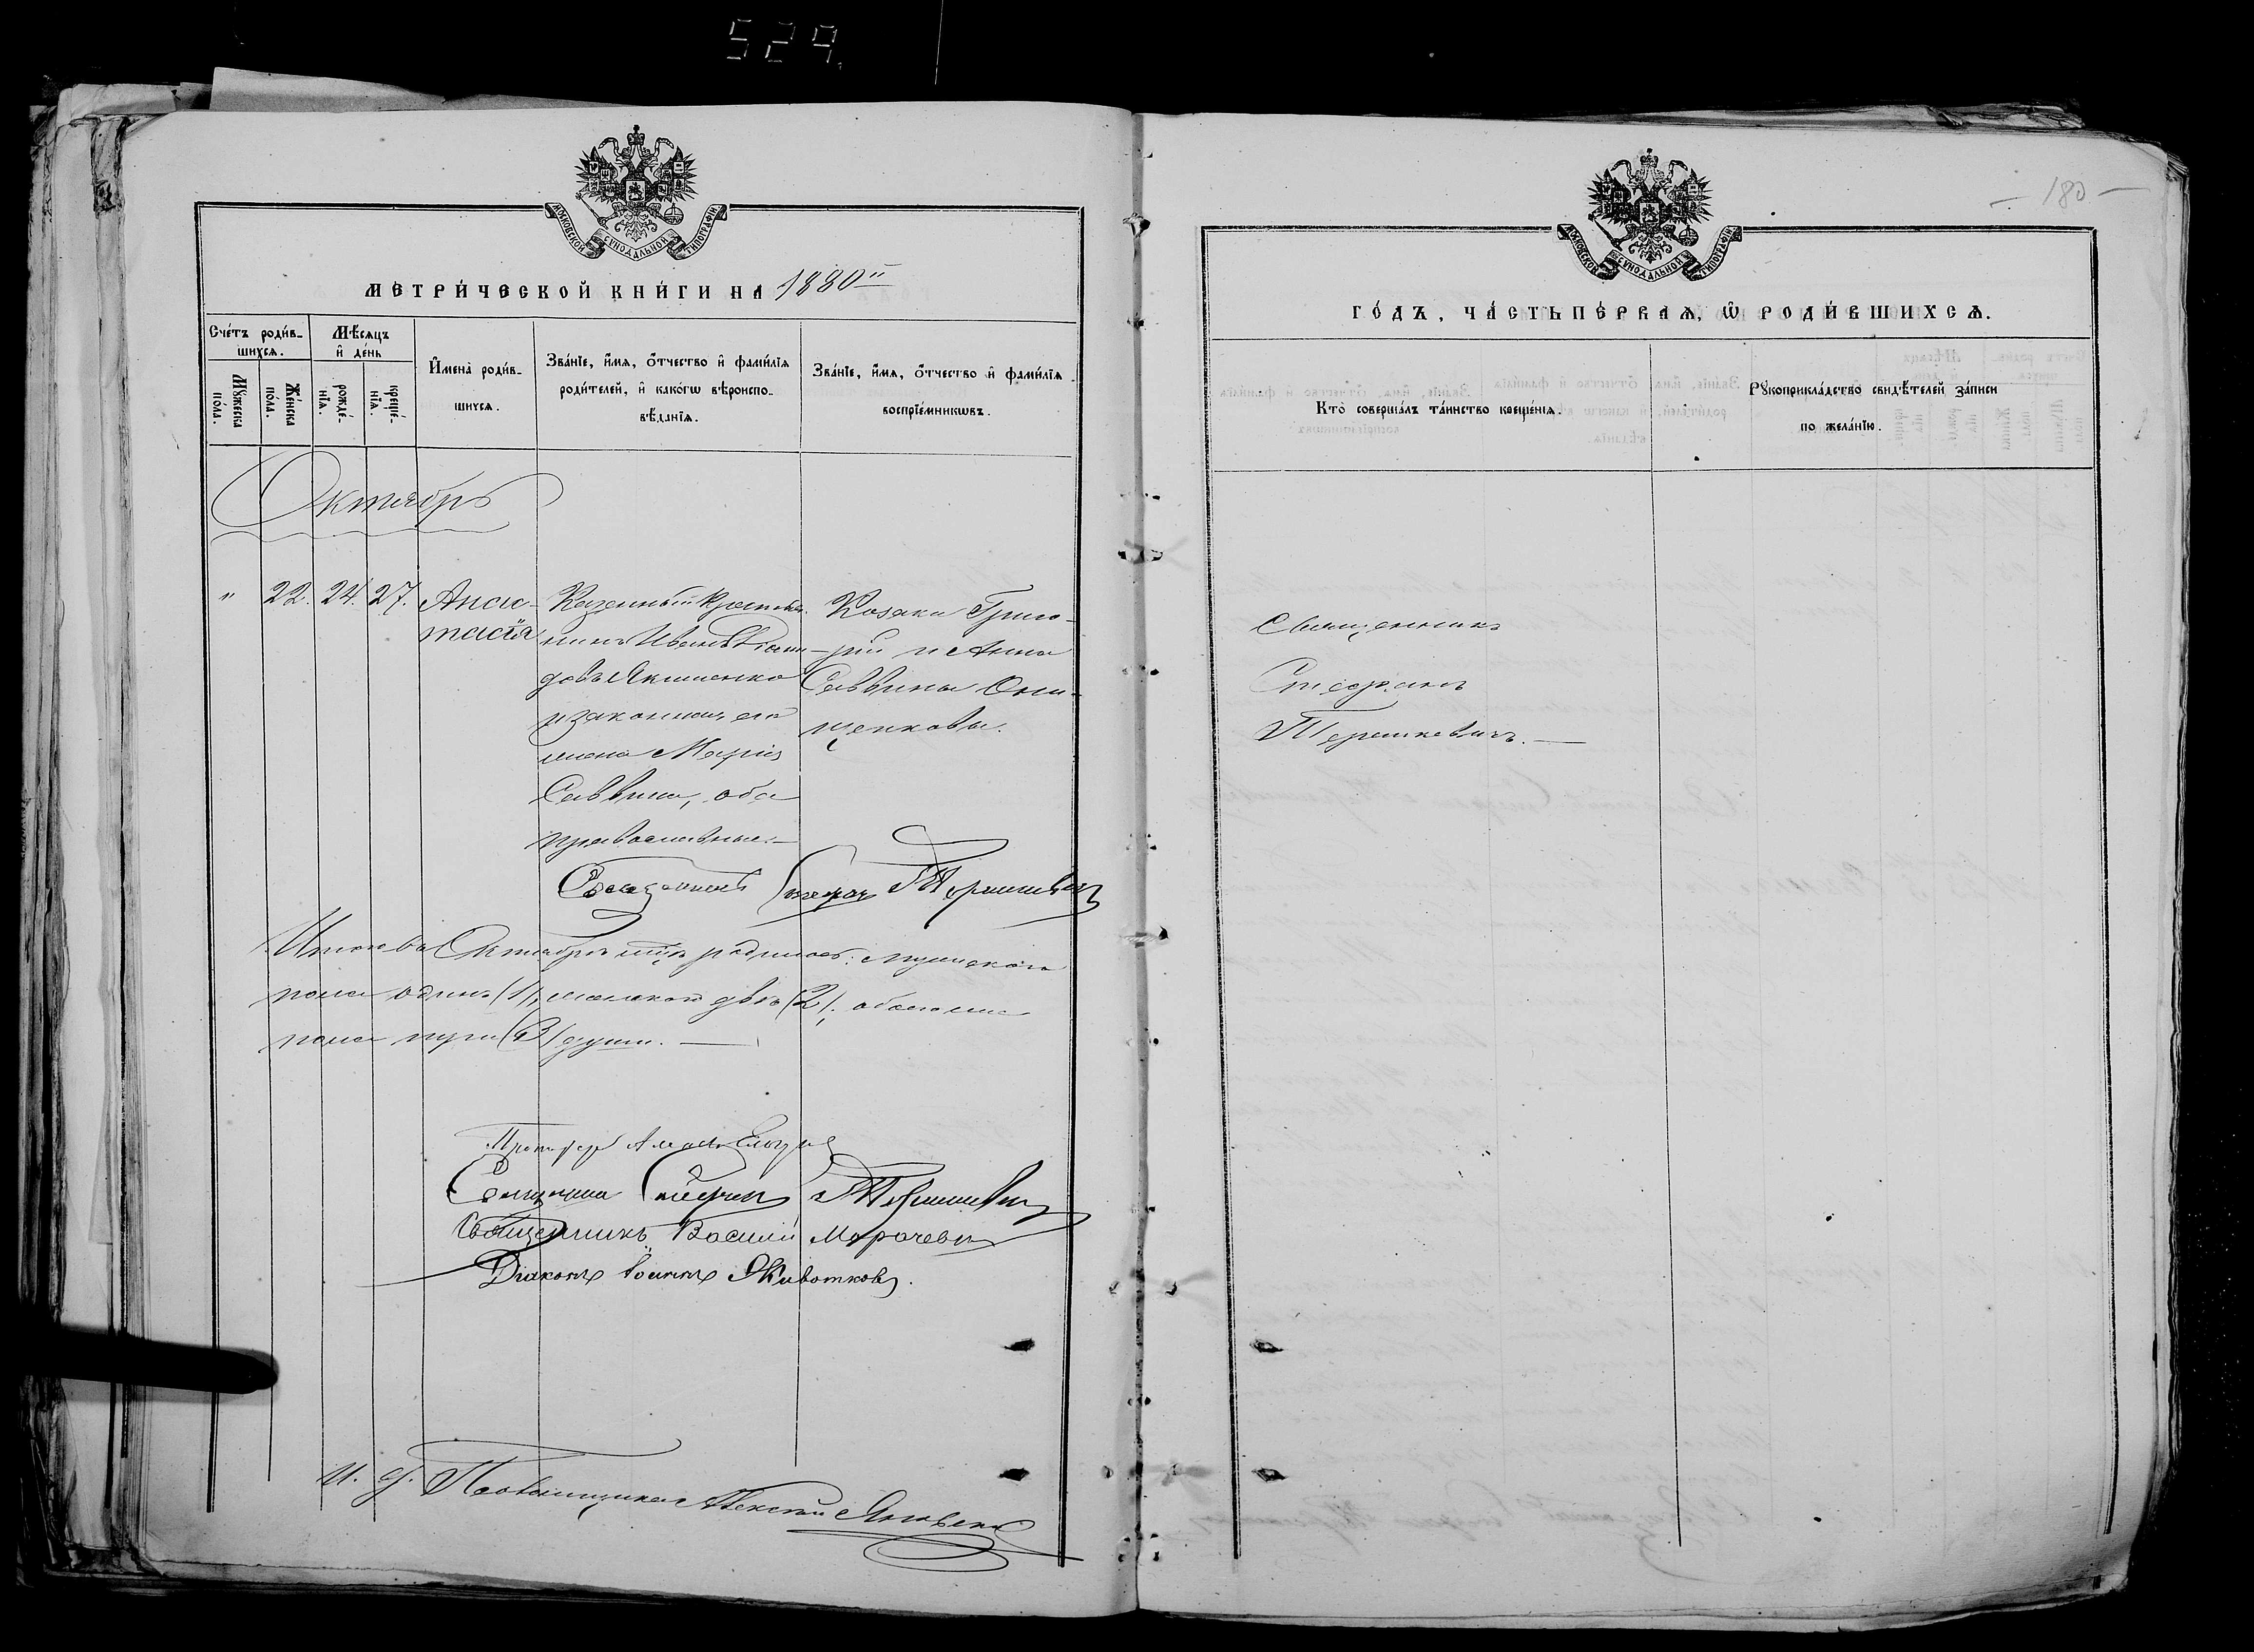 529.
МОСКОВСКОЙ СѴНОДАЛЬНОЙ ТИПОГРАФІИ
МЕТРИ́ЧЕСКОЙ КНИ́ГИ НА 1880й
Сче́тъ роди́в-
шихсѧ.
Мѣ́сѧцъ
и҆ де́нь
Мꙋ́жеска
по́ла.
Же́нска
по́ла.
рожде́-
нїѧ.
креще́-
нїѧ.
И҆мена̀ роди́в-
шихсѧ.
Зва́нїе, и҆́мѧ, ѻ҆́тчество и҆ фами́лїѧ
роди́телей, и҆ како́гѡ вѣ̀роиспо-
вѣ́данїѧ.
Зва́нїе, и҆́мѧ, ѻ҆́тчество и҆ фами́лїѧ
воспрїе́мникѡвъ.
Октябрь
" 22. 24. 27.
Анас-
тасія
Казенный крестья-
нинъ Иванъ
довъ Якименко
и законная его
жена Марія
Саввина, оба
православные.—
Козаки Григо-
рій и Анна
Саввины Они-
щенковы.
Священникъ Стефанъ Тершкевичъ
Итого въ Октябрѣ мцѣ родилось: мужескаго
пола одинъ (1), женскаго двѣ (2); обоего
пола три (3) души.—
Священникъ Стефанъ Тершкевичъ
Священникъ Василій Марачевъ
Діаконъ Іоаннъ Животковъ.
И. д. Псаломщика Алексѣй
— 180 —
МОСКОВСКОЙ СѴНОДАЛЬНОЙ ТИПОГРАФІИ
ГО́ДЪ, ЧА́СТЬ ПЕ́РВАѦ, Ѡ҆ РОДИ́ВШИХСѦ.
Кто̀ соверша́лъ та́инство креще́нїѧ.
Рꙋкоприкла́дство свидѣ́телей за́писи
по жела́нїю.
Священникъ
Стефанъ
Тершкевичъ.—